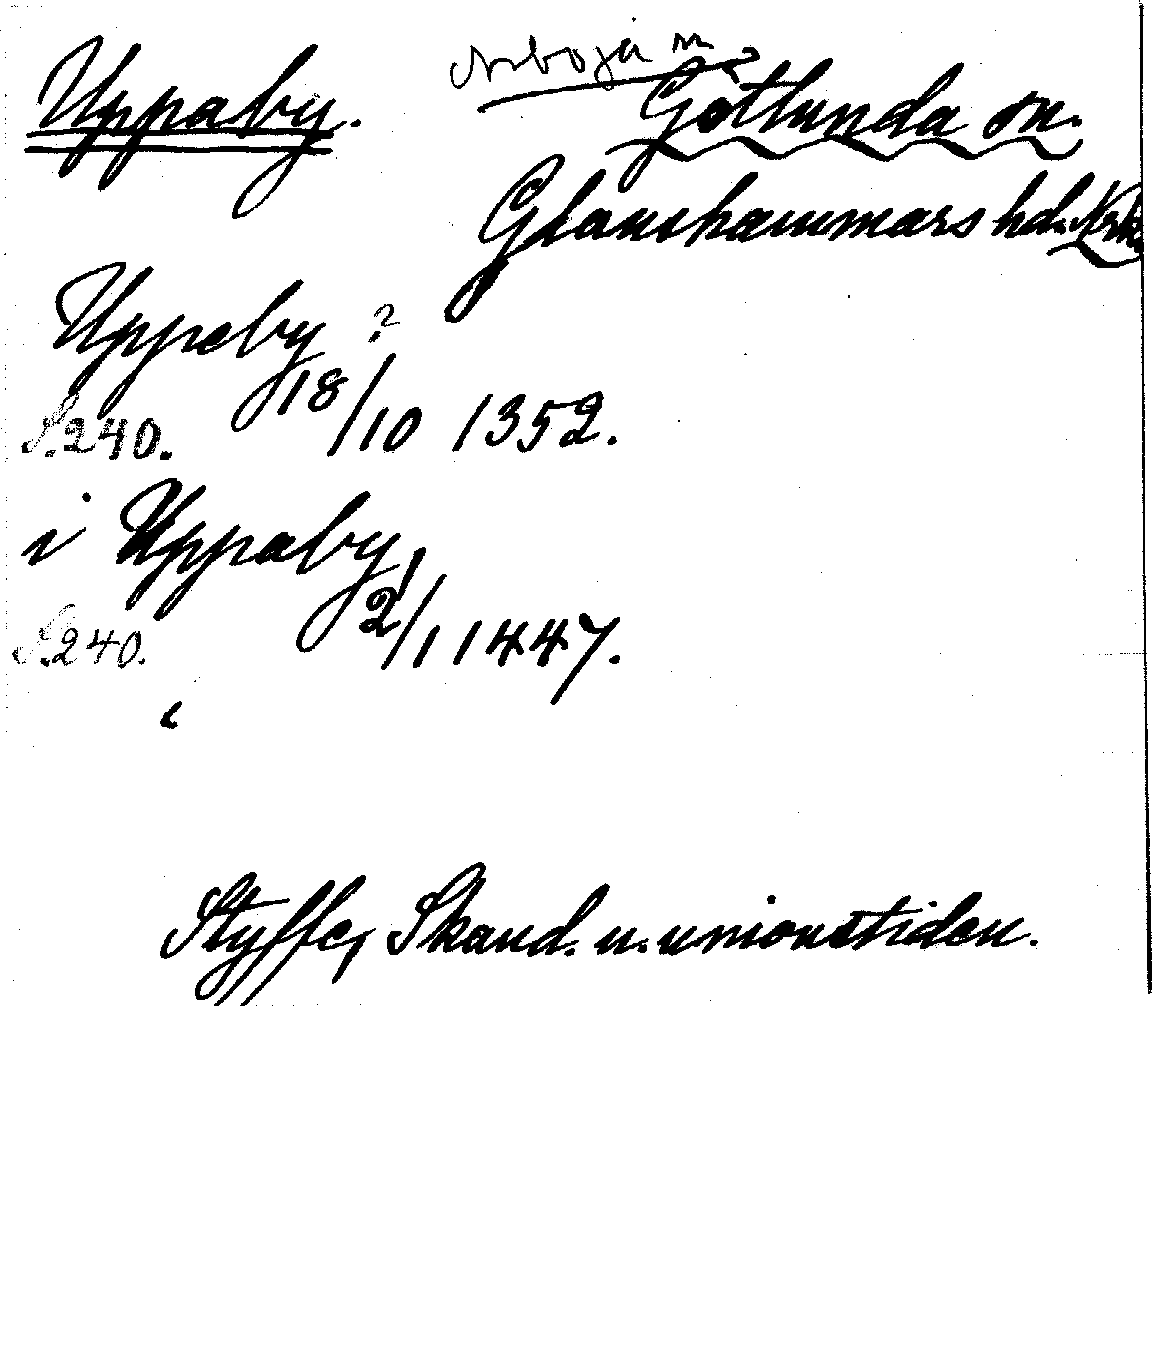 Uppaby. Arboga sn ?
Götlunda sn.
Glanshammars hd. Nrke
Uppeby ?
18/10 1352.
S. 240.
i Uppaby,
2/1 1447.
S. 240.
Styffe, Skand. u. unionstiden.